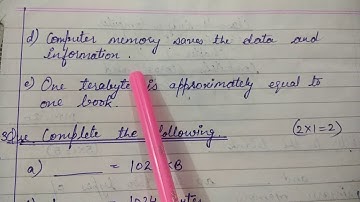 d) Computer memory saves the data and
information.
e) One terabyte is approximately equal to
one book.
Complete the following (2x1=2)
a) ____ = 102 KB
1024 bytes